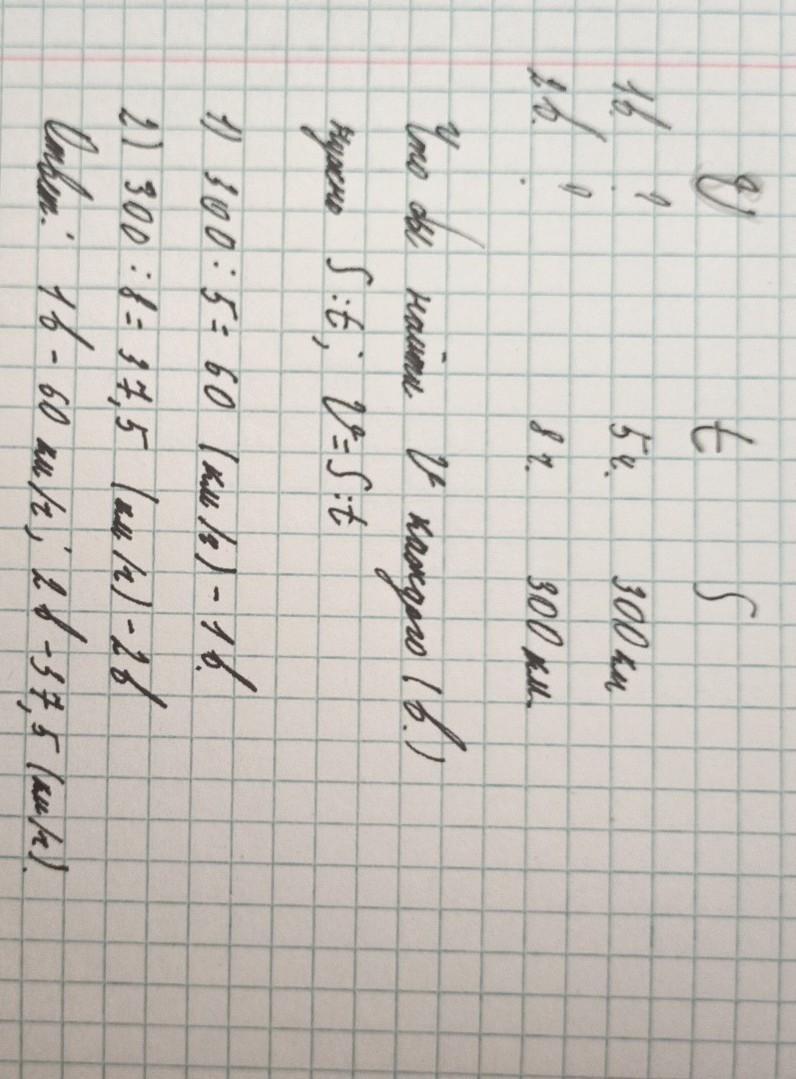 V t S
1 в. ? 5 ч. 300 км
2 в. ? 8 ч. 300 км.
Что бы найти V каждого (в.)
нужно S:t; V=S:t
1) 300:5=60 (км/ч)-1 в.
2) 300:8=37,5 (км/ч)-2 в
Ответ: 1 в - 60 км/ч; 2 в -37,5 (км/ч).